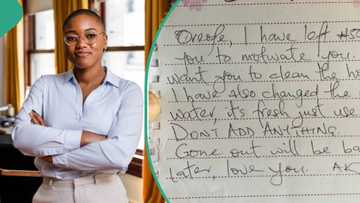 Oreofe, I have left #50
you to motivate you.
want you to clean the h
I have also changed the
water, it's fresh just use
DON'T ADD ANYTHING
Gone out will be ba
later, love you. AK